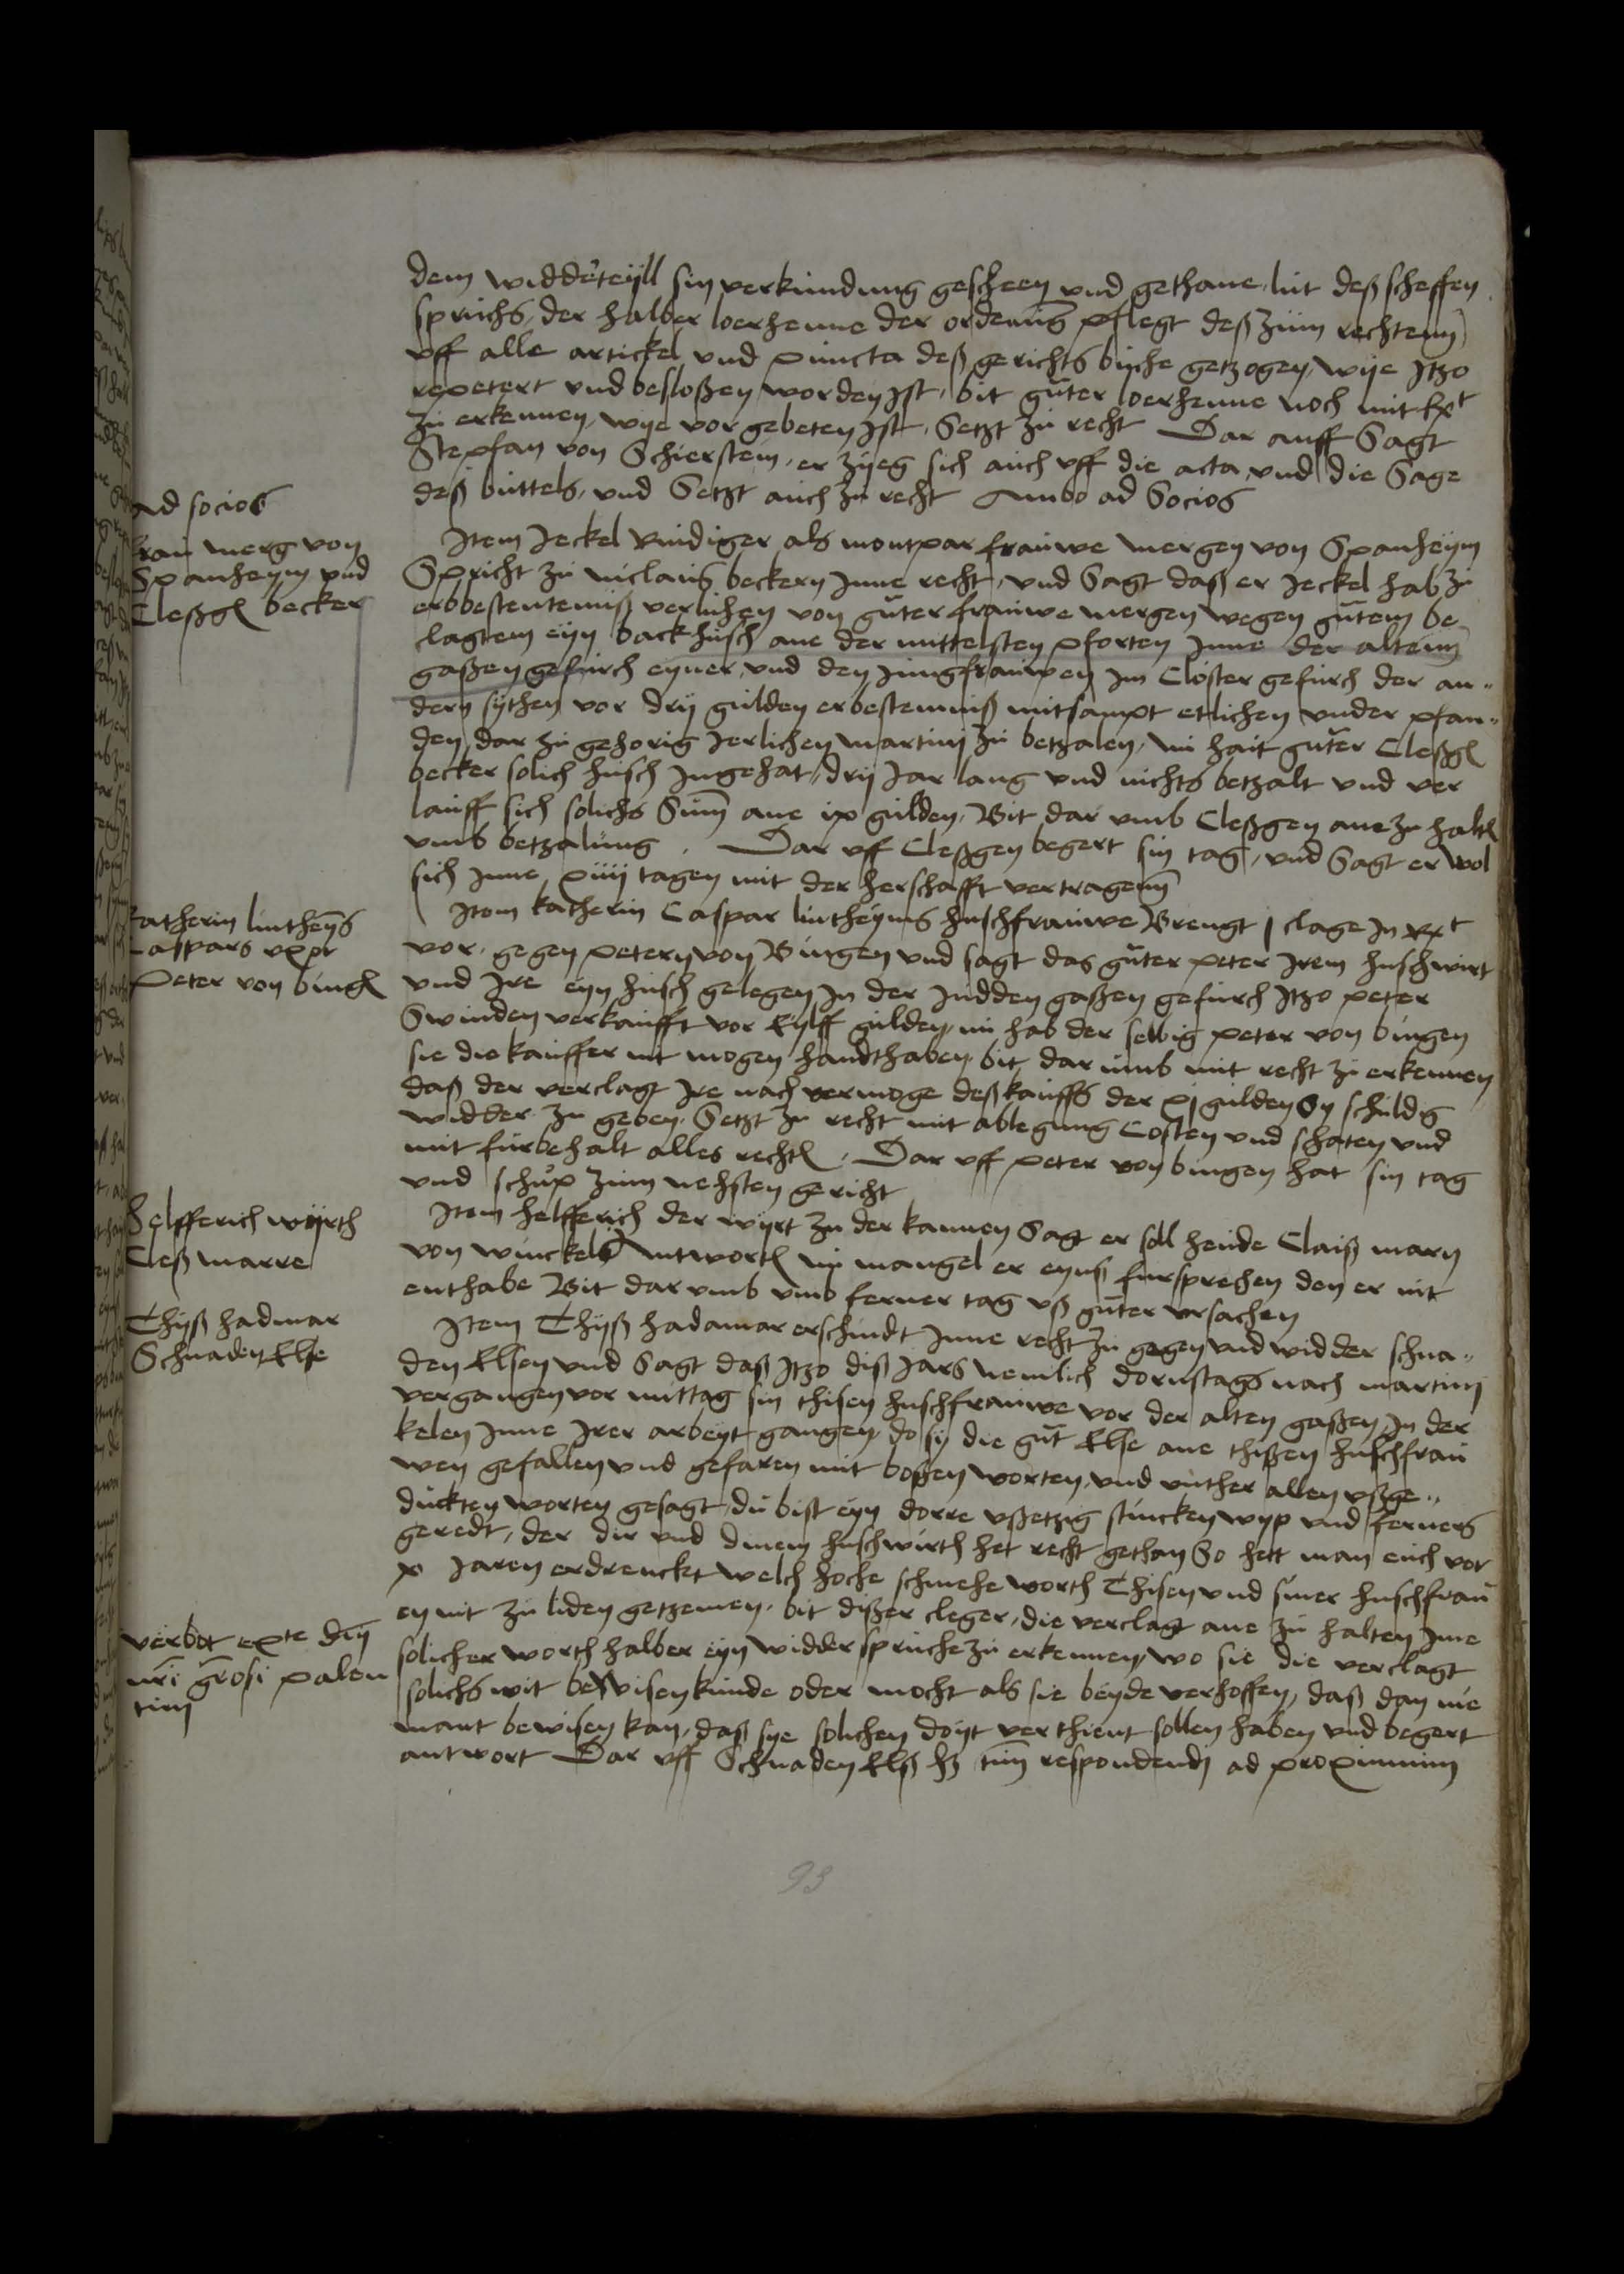 dem widderteyll sin verkundung gescheen und gethane lut deß scheffen
spruchs, der halber loerhenne der ordenung pflegt deß zum rechtenn
uff alle artickel und puncta deß gerichts buche getzogen, wye Itzo
repetert und besloßen worden Ist, bit guter loerhenne noch mit Rxt
zu erkennen, wye vorgebeten Ist, Setzt zu recht Dar auff Sagt
Stepfan von Schierstein, er zyeg sich auch uff die acta und die Sage
deß buttels, und Setzt auch zu recht Ambo ad Socios
Ad socios
frau merg von
Spanheym und
Cleßgen becker
Item Jeckel Rudiger als montpar frauwe mergen von Spanheym
Spricht zu niclaus beckern Inne recht, und Sagt daß er Jeckel hab zu
erbbestentemiß verluhen von guter frauwe mergen wegen gutem be
clagtem eyn backhusch ane der mittelsten pforten Inne der altenn
gaßen gefurch eyner, und den Jungfrauwen Im Closter gefurch der an-
dern sythen vor dry gulden erbestentniß mitsampt etlichen under pfan-
den dar zu gehorig Jerlichen martini zu betzalen, nu hait guter Cleßgen
becker solich husch Ingehat, dry Jar lang und nichts betzalt und ver
lauff sich solichs Sum ane ix gulden, Bit dar umb Cleßgen ane zu halten
umb betzalung. Dar uff Cleßgen begert sin tag, und Sagt er wol
sich Inne xiiij tagen mit der herschafft vertragenn
katherin luntheyms
Caspars uxor
Peter von bingen
Item katherin Caspar luntheyms huschfrauwe Brengt I clage In Rxt
vor gegen petern von Bingen und sagt das guter peter Irem huschwirt
und Ire eyn husch gelegen In der Judden gaßen gefurch Itzo peter
Swinden verkaufft vor Eylff gulden, nu hab der selbig peter von bingen
sie die kauffer nit mogen handthaben, bit dar umb mit recht zu erkennen
daß der verclagt Ire nach vermoge deß kauffs der xj gulden Sy schuldig
widder zu geben, Setzt zu recht mit ablegung Costen und schaten und
mit furbehalt alles rechten, Dar uff peter von bingen hat sin tag
und schup zum nehsten gericht
Helfferich wyrth
Cleß marre
Item helfferich der wyrt zu der kannen Sagt er soll heude Claiß marn
von winckel Antworten nu mangel er eyns fursprechen den er nit
enthabe Bit dar umb umb ferner tag uß guter ursachen
Thyß hadmar
Schnaden Else
Item Thyß hadamar erschindt Inne recht zu gegen und widder schna-
den Elsen und Sagt daß Itzo diß Jars nemlich dornstags nach martini
vergangen vor mittag sin thisen huschfrauwe vor der alten gaßen In der
kelen Inne Irer arbeyt gangen, do sy die gut Else ane thißen huschfrau
wen gefallen und gefaren mit boßen worten, und unther allen ußge-
duckten worten gesagt, du bist eyn dorre ußetzig stuncken wyp und ferners
geredt, der dir und dinem huschwirth het recht gethan So hett man euch vor
x Jaren erdrenckt welch hoche schmehe worth Thisen und siner huschfrau
en nit zu liden getzemen, bit dißer cleger, die verclagt ane zu halten Ime
solicher worth halber eyn widderspruche zu erkennen, wo sie die verclagt
solichs nit bewisen kunde oder mocht als sie beyde verhoffen, daß dan nie
mant bewisen kan, daß sye solichen doyt verthient sollen haben und begert
antwort Dar uff Schnaden Elß hz tim respondendj ad proximum
verbot
palen
tini
93